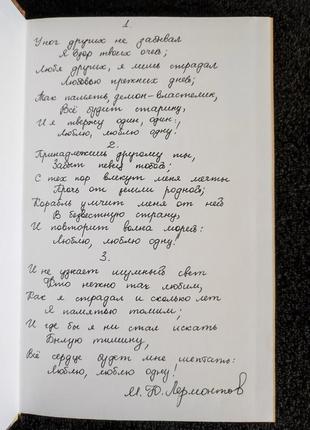 1
У ног других не забывал
Я взор твоих очей;
Любя других, я лишь страдал
Любовью прежних дней;
Так память, демон-властелин,
Всё будит старину,
И я твержу один, один:
Люблю, люблю одну!
2.
Принадлежишь другому ты,
Забыт певец тобой;
С тех пор влекут меня мечты
Прочь от земли родной;
Корабль умчит меня от ней
В безвестную страну,
И повторит волна морей:
Люблю, люблю одну!
3.
И не узнает шумный свет
Кто нежно так любим,
Как я страдал и сколько лет
Я памятью томим;
И где бы я ни стал искать
Былую тишину,
Всё сердце будет мне шептать:
Люблю, люблю одну!
М. Ю. Лермонтов